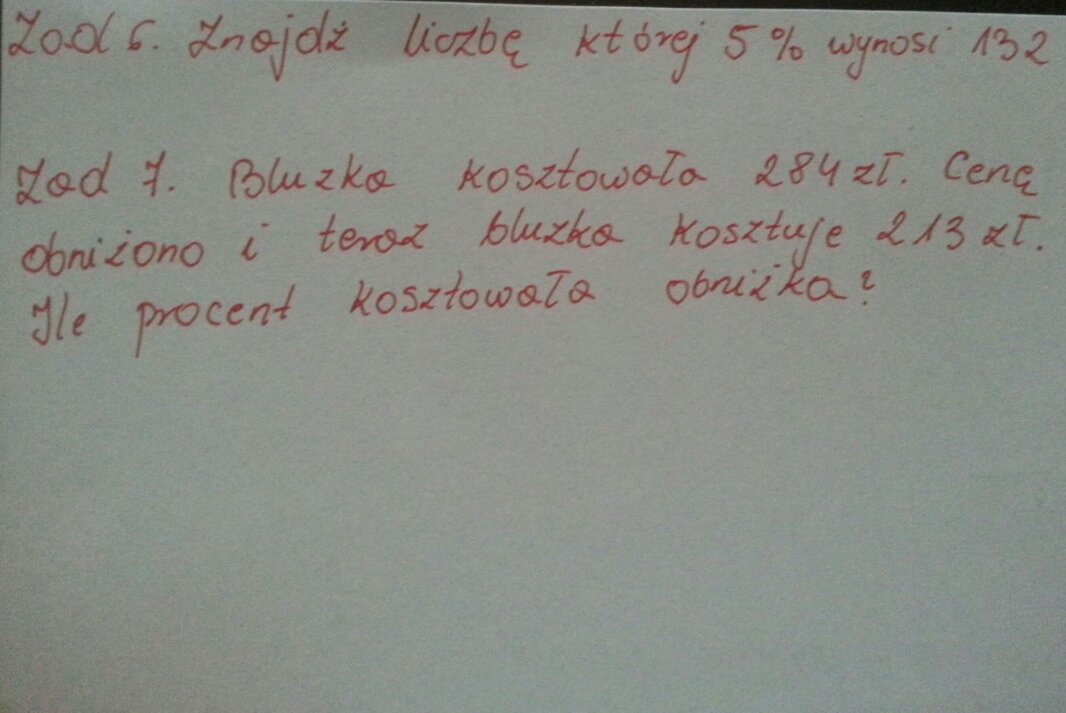 Zad 6. Znajdź liczbę której 5% wynosi 132
Zad 7. Bluzka kosztowała 284 zł. Cenę
obniżono i teraz bluzka kosztuje 213 zł.
Ile procent kosztowała obniżka?